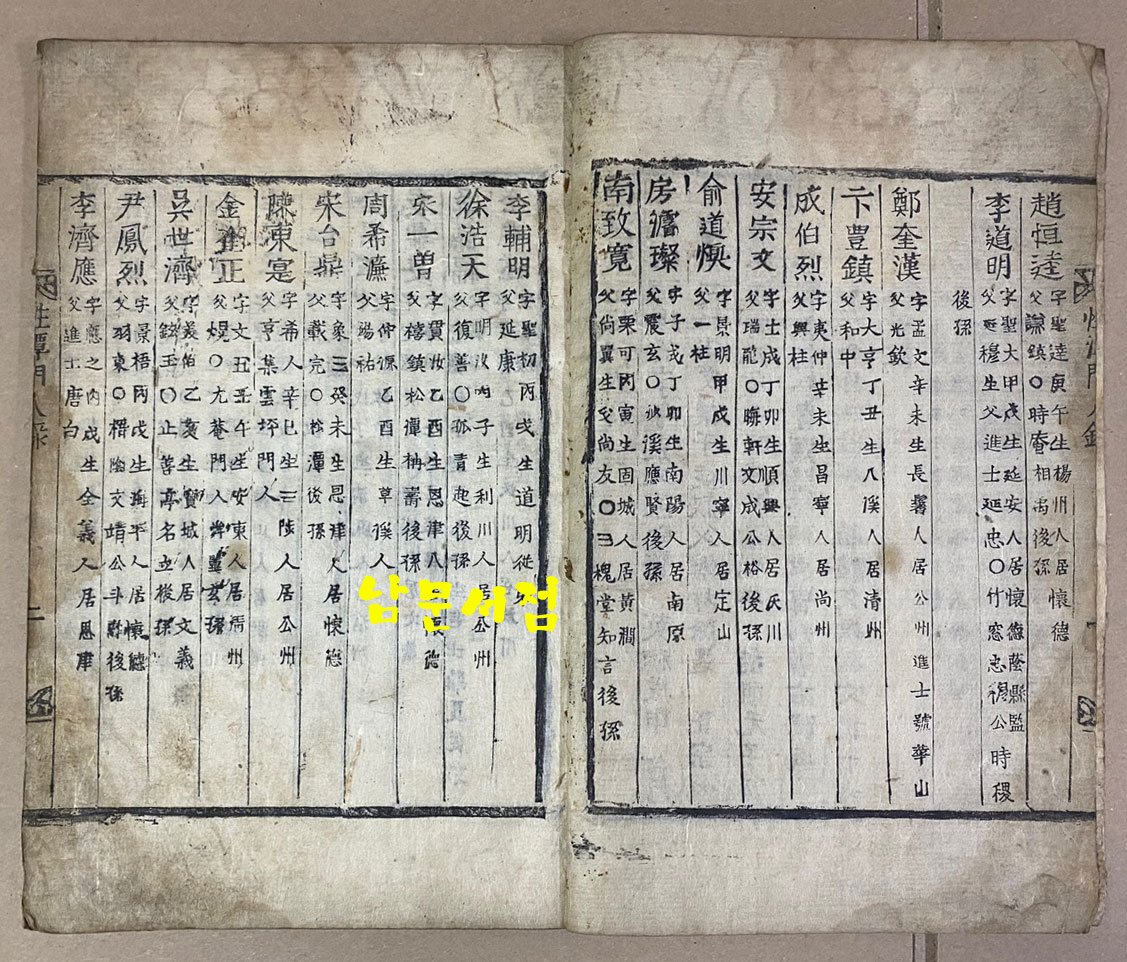 趙恒逵 字聖達庚午生楊州人居懷德
父謙鎮〇時菴相禹後孫
李道明 字聖大甲戊生延安人居懷德蔭縣監
父延穆生父進士延忠〇竹窓忠穆公時稷
後孫
鄭奎漢 字孟文辛未生長鬐人居公州進士號華山
父光欽
卞豊鎮 字大亨丁丑生八溪人居清州
父和中
成伯烈 字夷仲辛未生昌寧人居尚州
父興柱
安宗文 字士成丁卯生順興人居氏川
父瑞龍〇聯軒文成公裕後孫
俞道煥 字景明甲戌生川寧人居定山
父一柱
房璨 字子戈丁卯生南陽人居南原
父震玄〇沙溪應賢後孫
南致寬 字栗可丙寅生固城人居黃澗
父尚翼生父尚友〇槐堂知言後孫
李輔明 字聖初丙戌生道明從
父延康
徐浩天 字明汝丙子生利川人居公州
父復善〇孤青起後孫
宋一曾 字貫汝乙酉生恩津人居懷德
父禧鎮松潭柟壽後孫
周希濂 字仲源乙酉生草溪人
父錫祐
宋台鼎 字象三癸未生恩津人居懷德
父載完〇松潭後孫
陳東寔 字希人辛巳生三陟人居公州
父亨集雲坪門人
金正 字文五壬午生安東人居清州
父熀〇尤菴門人後孫
吳世濟 字義伯乙亥生寶城人居文義
父鉉玉〇止善亭名立後孫
尹鳳烈 字景梧丙戊生海平人居懷德
父羽東〇梧陰文靖公斗壽後孫
李濟應 字應之丙戌生全義人居恩津
父進士唐白
性潭門人錄
남문서점